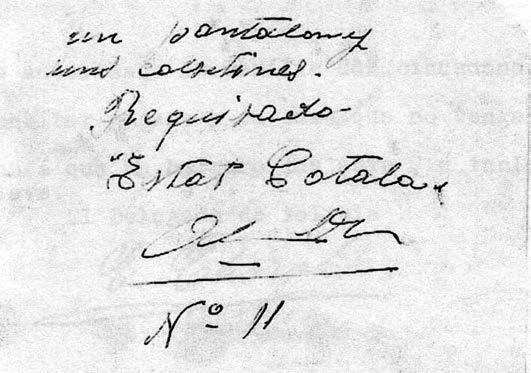 un pantalon y
uns calsetines.
Requisado
"Estat Catala"
Nº 11